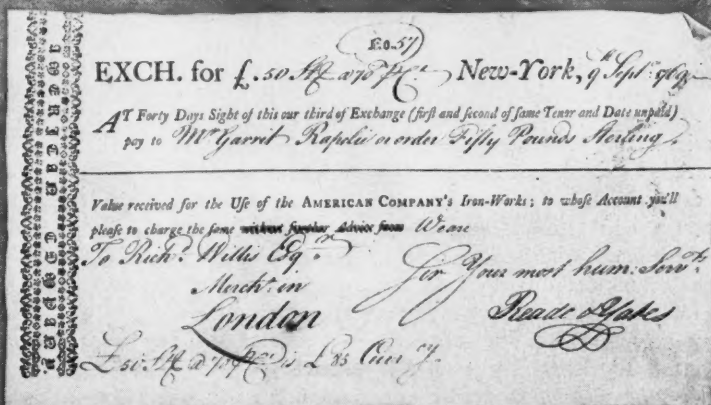 No. 57
EXCH. for £.50 Stg @ 70 p Ct. New-York, 9th Septr. 1769
AT Forty Days Sight of this our third of Exchange (first and second of same Tenor and Date unpaid)
pay to Mr Garrit Rapelie or order Fifty Pounds Sterling,
Value received for the Use of the AMERICAN COMPANY's Iron-Works; to whose Account you'll
please to charge the same without further Advice from We are
To Richd. Willis Esqr. Sir Your most hum: Servts.
Mercht. in
London Reade & Yates
£50 Stg @ 70 p Ct. is £85 Curr cy.